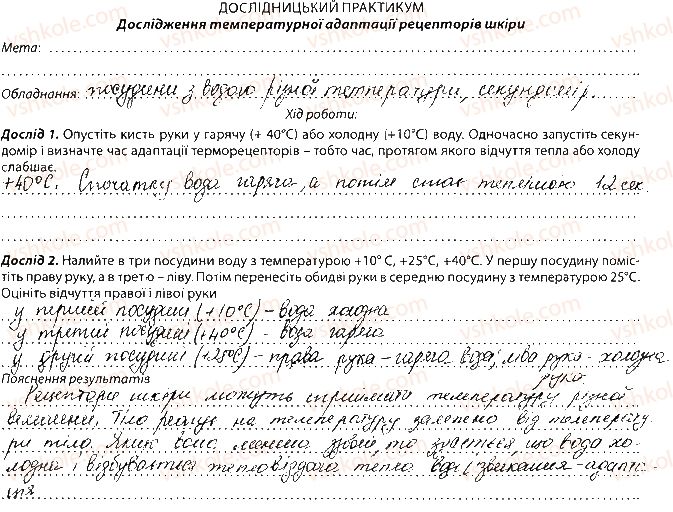 ДОСЛІДНИЦЬКИЙ ПРАКТИКУМ
Дослідження температурної адаптації рецепторів шкіри
Мета:
Обладнання: посудини з водою різної температури, секундомір.
Хід роботи:
Дослід 1. Опустіть кисть руки у гарячу (+ 40°С) або холодну (+10°С) воду. Одночасно запустіть секун-
домір і визначте час адаптації терморецепторів – тобто час, протягом якого відчуття тепла або холоду
слабшає.
+40°С. Спочатку вода гаряча, а потім стає теплішою 12 сек
Дослід 2. Налийте в три посудини воду з температурою +10° С, +25°С, +40°С. У першу посудину поміс-
тіть праву руку, а в третю – ліву. Потім перенесіть обидві руки в середню посудину з температурою 25°С.
Оцініть відчуття правої і лівої руки
у першій посудині (+10°С) – вода холодна
у третій посудині (+40°С) – вода гаряча
у другій посудині (+25°С) – права рука – гаряча вода; ліва рука – холодна
Пояснення результатів
рука
Рецептори шкіри можуть сприймати температуру різної
величини. Тіло реагує на температуру залежно від температу-
ри тіла. Якщо вона, то здається що вода хо-
лодна і відбувається тепловіддача тепла звикання – адапта-
ція